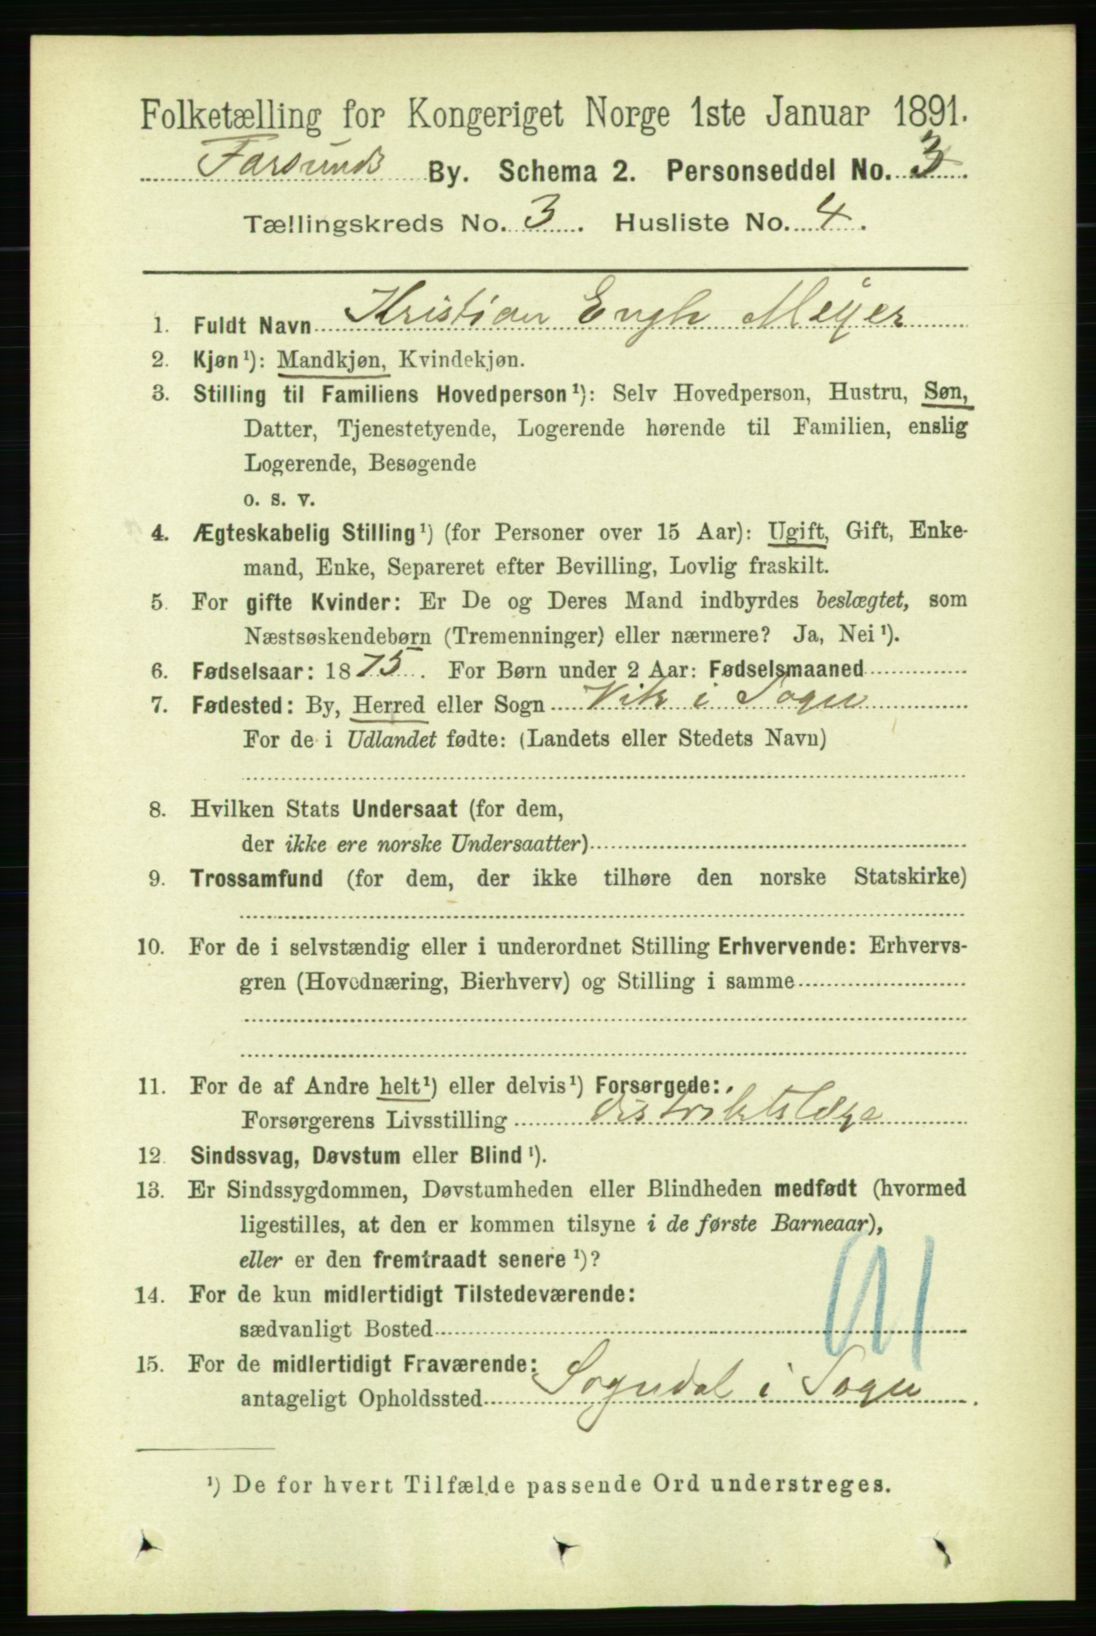 Folketælling for Kongeriget Norge 1ste Januar 1891.
Farsunds By. Schema 2. Personseddel No. 3
Tællingskreds No. 3. Husliste No. 4.
1. Fuldt Navn Kristian Engh Meyer
2. Kjøn¹): Mandkjøn, Kvindekjøn.
3. Stilling til Familiens Hovedperson¹): Selv Hovedperson, Hustru, Søn,
Datter, Tjenestetyende, Logerende hørende til Familien, enslig
Logerende, Besøgende
o. s. v.
4. Ægteskabelig Stilling¹) (for Personer over 15 Aar): Ugift, Gift, Enke-
mand, Enke, Separeret efter Bevilling, Lovlig fraskilt.
5. For gifte Kvinder: Er De og Deres Mand indbyrdes beslægtet, som
Næstsøskendebørn (Tremenninger) eller nærmere? Ja, Nei¹).
6. Fødselsaar: 1875. For Børn under 2 Aar: Fødselsmaaned
7. Fødested: By, Herred eller Sogn Vik i Sogn
For de i Udlandet fødte: (Landets eller Stedets Navn)
8. Hvilken Stats Undersaat (for dem,
der ikke ere norske Undersaatter)
9. Trossamfund (for dem, der ikke tilhøre den norske Statskirke)
10. For de i selvstændig eller i underordnet Stilling Erhvervende: Erhvervs-
gren (Hovednæring, Bierhverv) og Stilling i samme
11. For de af Andre helt¹) eller delvis¹) Forsørgede:
Forsørgerens Livsstilling distriktslæge
12. Sindssvag, Døvstum eller Blind¹).
13. Er Sindssygdommen, Døvstumheden eller Blindheden medfødt (hvormed
ligestilles, at den er kommen tilsyne i de første Barneaar),
eller er den fremtraadt senere¹)?
14. For de kun midlertidigt Tilstedeværende:
sædvanligt Bosted
15. For de midlertidigt Fraværende:
antageligt Opholdssted Sogndal i Sogn.
¹) De for hvert Tilfælde passende Ord understreges.